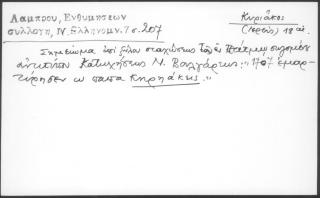 Λαμπρου, Ενθυμησεων
συλλογη, Ν. Ελληνομν. 7 σ. 207
Κυριᾶκος
(ἱερεὺς) 18 αἰ.
Σημείωμα ἐπὶ ξύλου σταχώσεως τοῦ ἐν Πάτμῳ σωζομένου
ἀντιτύπου Κατηχήσεως Ν. Βουλγάρεως: "1707 ἐμαρ-
τύρησεν ω παπα Κηρηάκης."